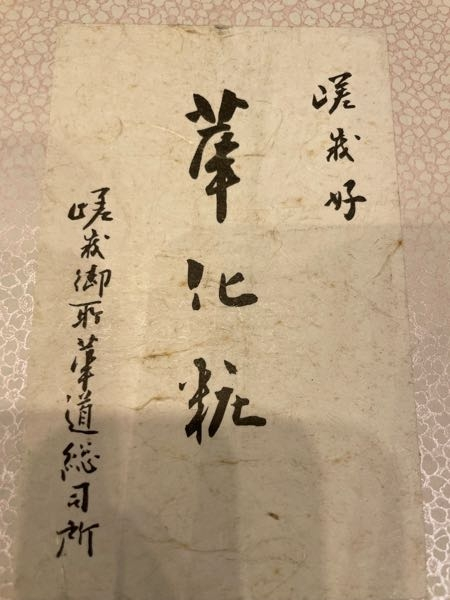 嵯峨好
華化粧
嵯峨御所華道総司所